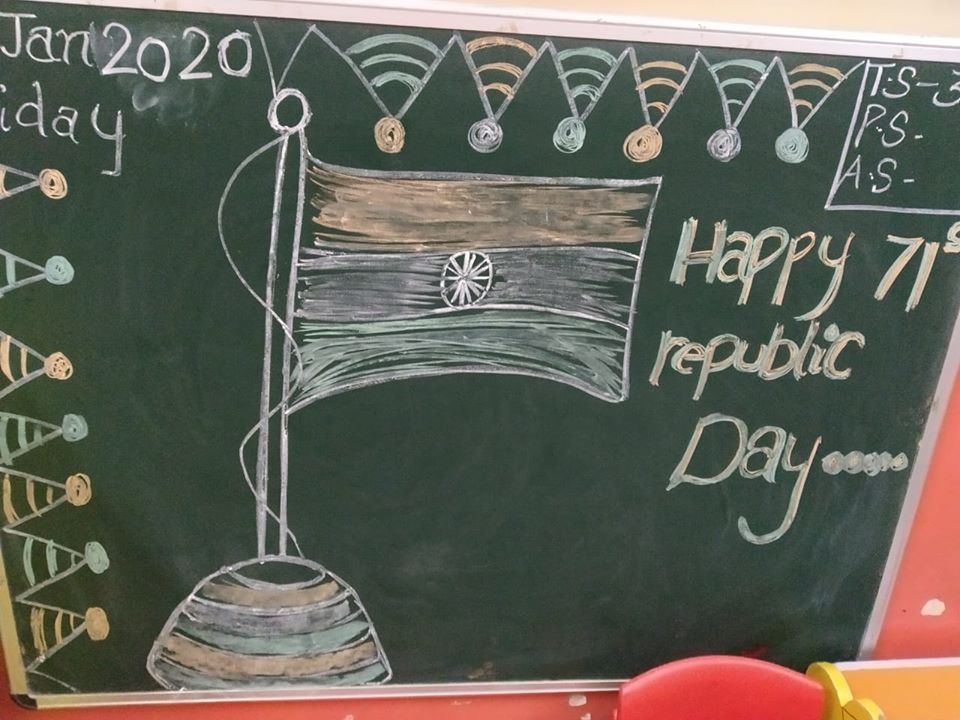 Jan 2020
iday
T.S-3
P.S-
A.S-
Happy 71s
republic
Day.....